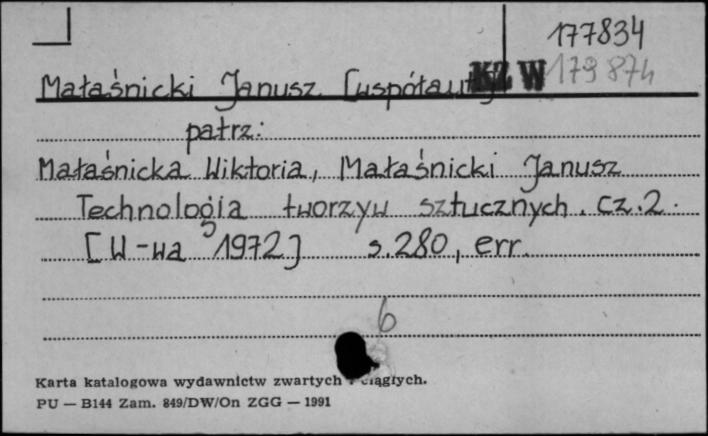 177834
Małaśnicki Janusz [współaut] KZ W 179 874
patrz:
Małaśnicka Wiktoria, Małaśnicki Janusz
Technologia tworzyw sztucznych. cz.2.
[W-wa 1972] s.280, err.
6
Karta katalogowa wydawnictw zwartych i ciągłych.
PU — B144 Zam. 849/DW/On ZGG — 1991